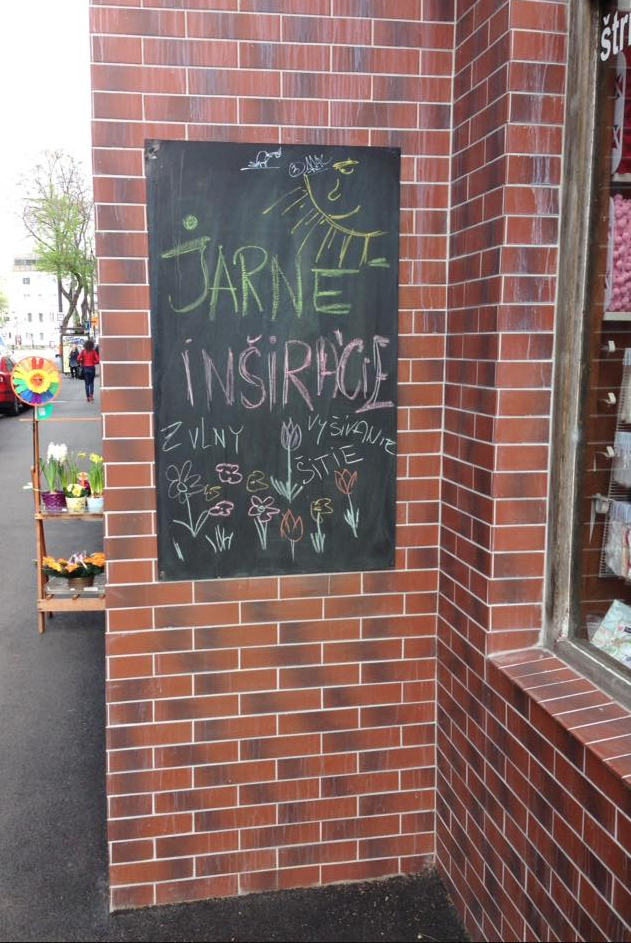 štri
JARNÉ
INŠIRÁCIE
Z VLNY VYŠÍVANIE
ŠITIE